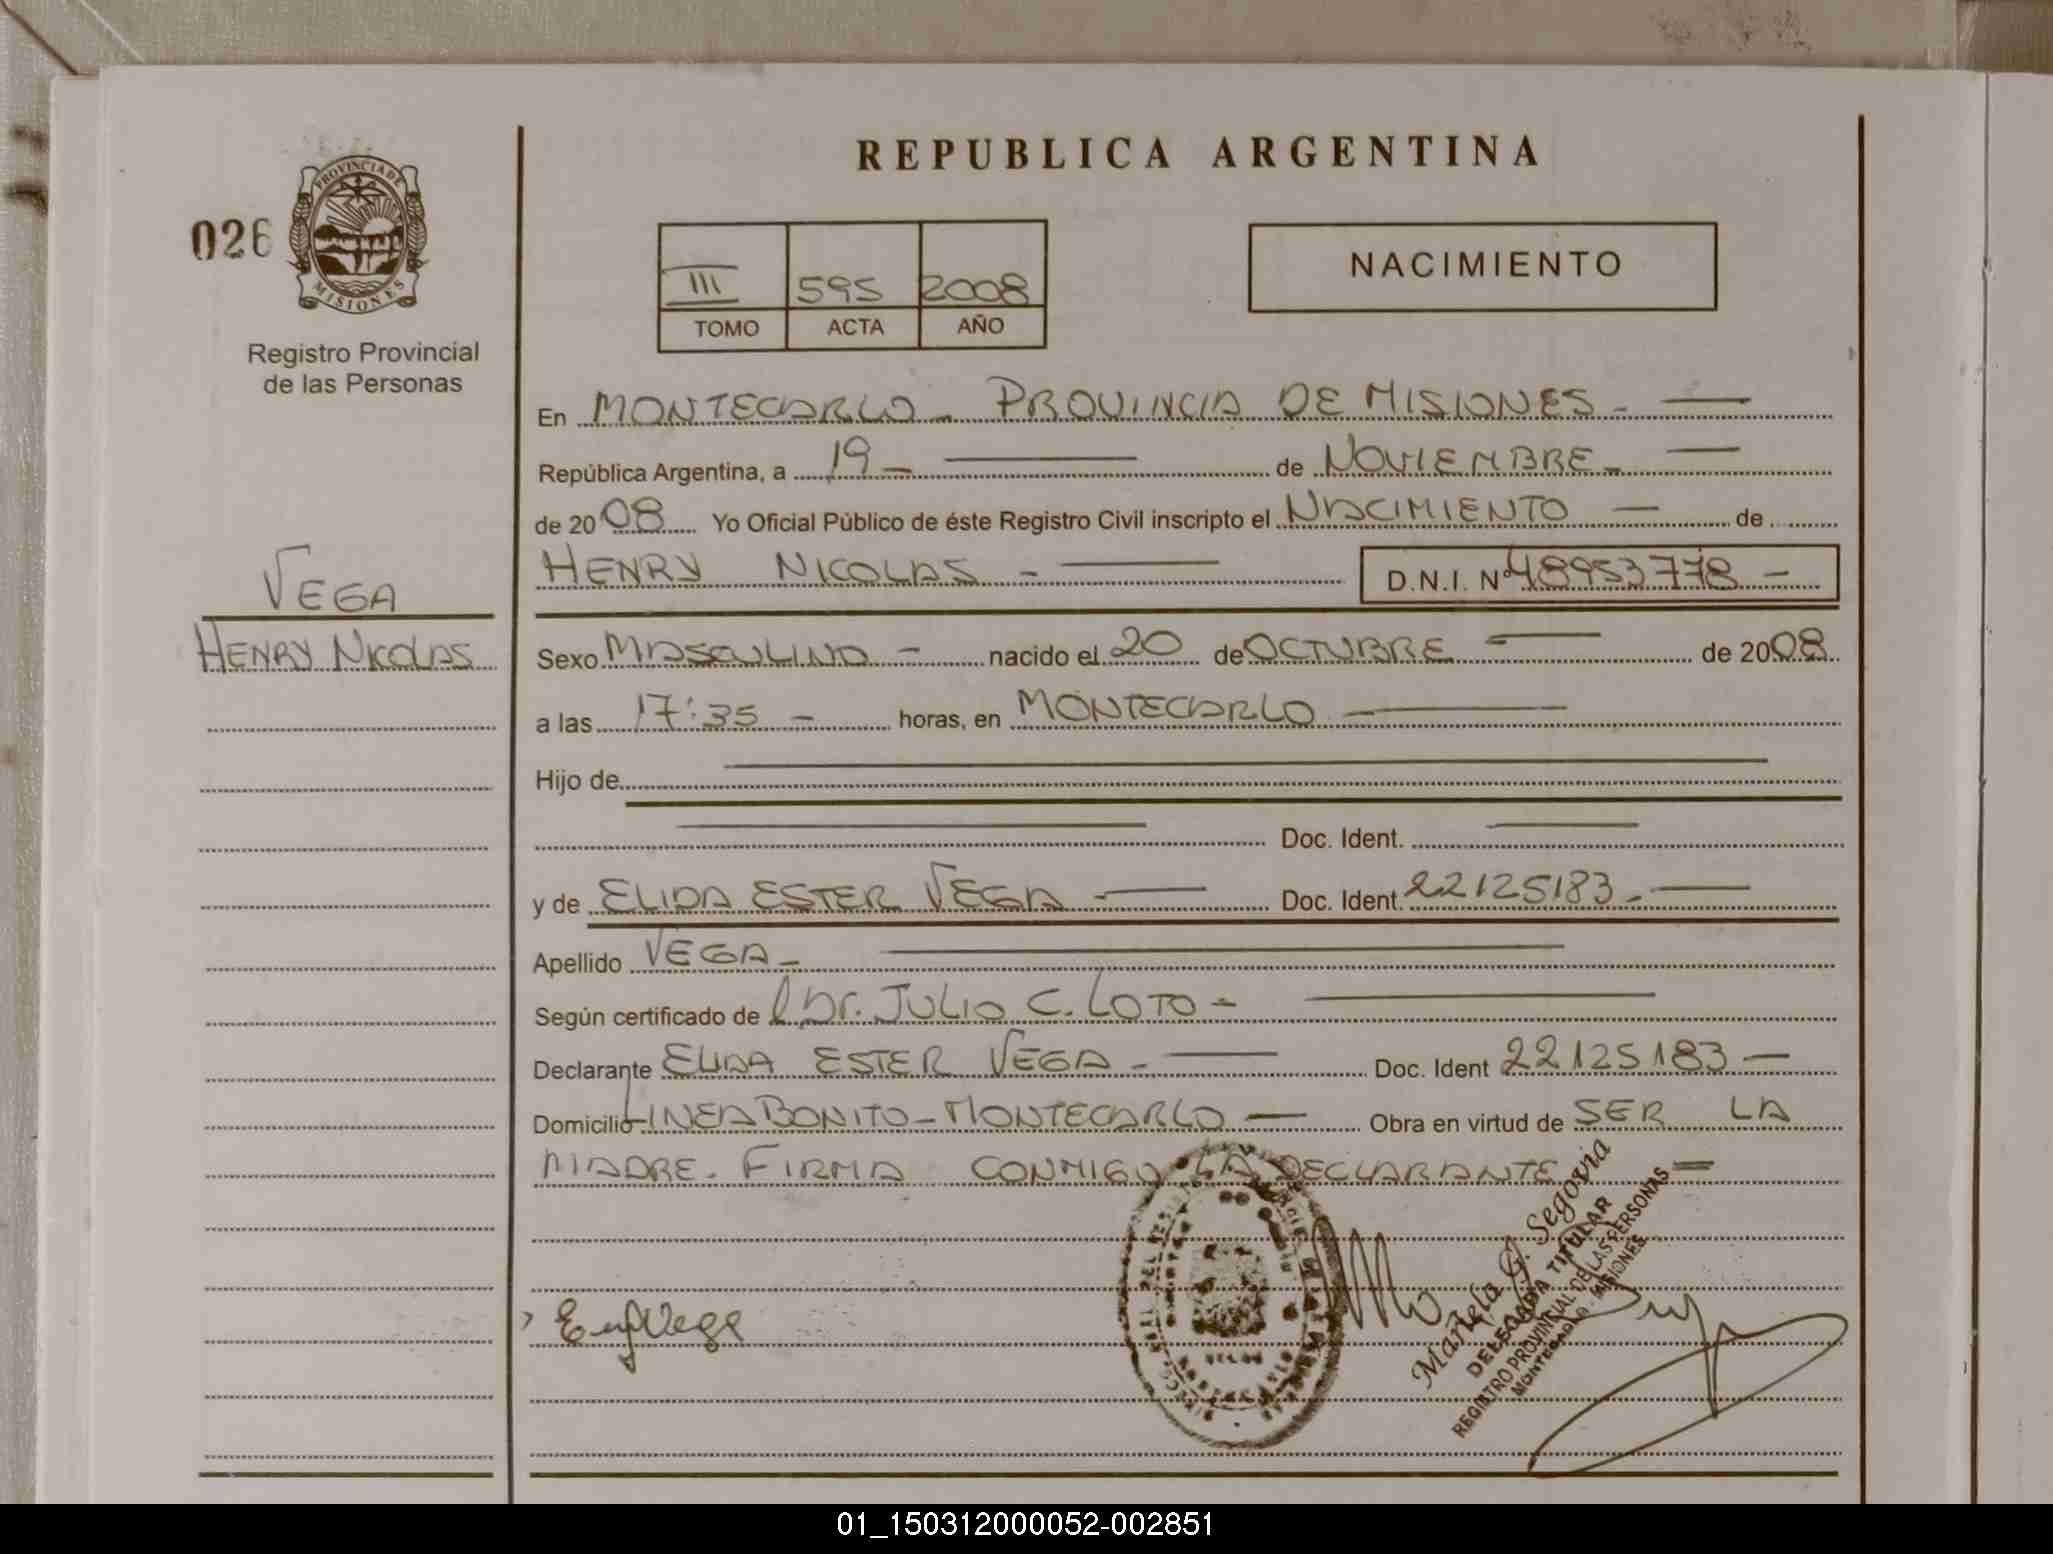 REPUBLICA ARGENTINA
PROVINCIA DE
MISIONES
026
Registro Provincial
de las Personas
III 595 2008
TOMO ACTA AÑO
NACIMIENTO
En MONTECARLO - PROVINCIA DE MISIONES -
República Argentina, a 19 - de NOVIEMBRE -
de 2008 Yo Oficial Público de éste Registro Civil inscripto el NACIMIENTO - de
HENRY NICOLAS - D.N.I. Nº 48953778 -
VEGA
HENRY NICOLAS
Sexo MASCULINO - nacido el 20 de OCTUBRE - de 2008
a las 17:35 - horas, en MONTECARLO -
Hijo de
Doc. Ident.
y de ELIDA ESTER VEGA - Doc. Ident. 22125183 -
Apellido VEGA -
Según certificado de l Dr. JULIO C. LOTO -
Declarante ELIDA ESTER VEGA - Doc. Ident 22125183 -
Domicilio LINEA BONITO - MONTECARLO - Obra en virtud de SER LA
MADRE. FIRMA CONMIGO LA DECLARANTE =
Vega
Mariela G. Segovia
DELEGADA TITULAR
REGISTRO PROVINCIAL DE LAS PERSONAS
MONTECARLO - MISIONES
01_150312000052-002851